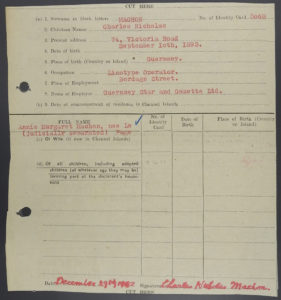 CUT HERE
(a) 1. Surname in block letters MACHON No. of Identity Card. 3068
2. Christian Names Charles Nicholas
3. Present address 74, Victoria Road
4. Date of birth September 10th, 1893.
5. Place of birth (Country or Island) Guernsey.
6. Occupation Linotype Operator.
7. Place of Employment Bordage Street.
8. Name of Employer Guernsey Star and Gazette Ltd.
(b) 9. Date of commencement of residence, in Channel Islands
FULL NAME
No. of Identity Card
Date of Birth
Place of Birth (Country or Island)
Annie Margaret Machon, nee Le
(Judicially separated)
(c) Of Wife (if now in Channel Islands)
(d) Of all children, including adopted
children (of whatever age they may be)
forming part of the declarant's house-
hold
Date December 29th 1942 Signed Charles Nicholas Machon.
CUT HERE